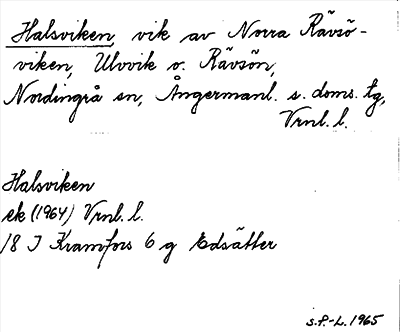 Halsviken, vik av Norra Rävsö-
viken, Ulvvik o. Rävsön,
Nordingrå sn, Ångermanl. s. doms. tg,
Vrnl. l.
Halsviken
ek (1964) Vrnl. l.
18 J Kramfors 6 g Edsätter
S.P.-L. 1965